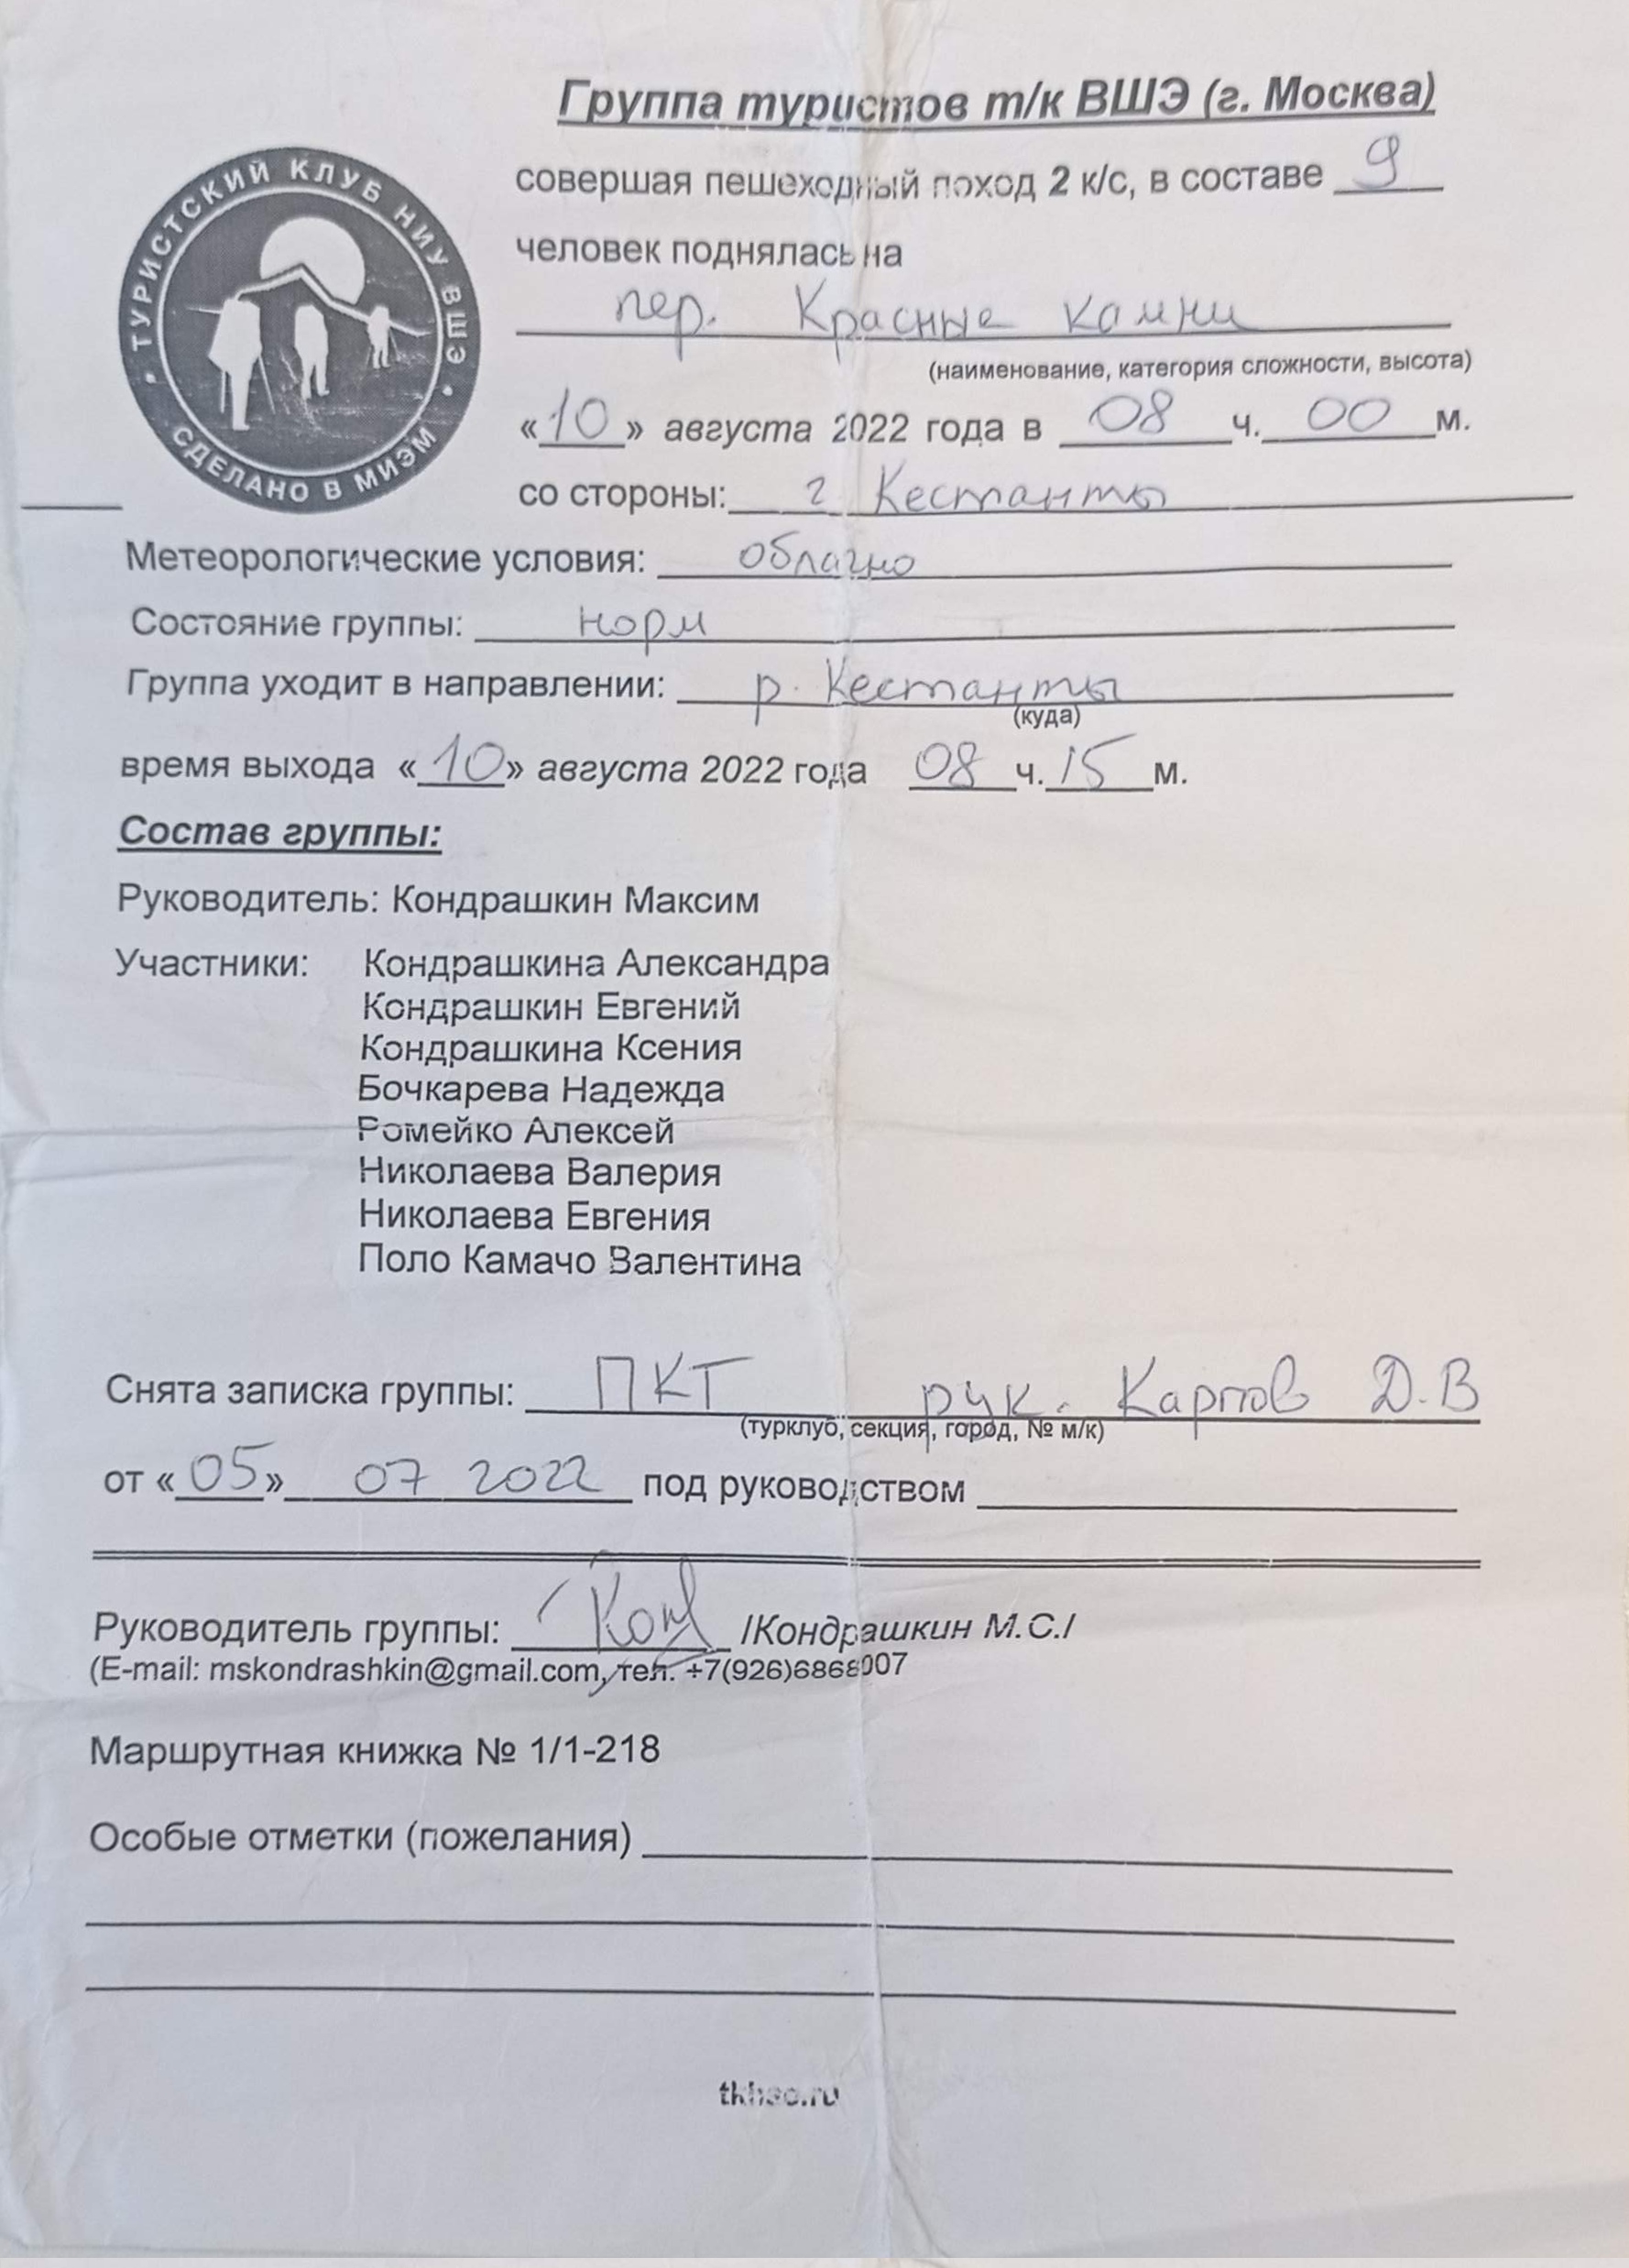 Группа туристов т/к ВШЭ (г. Москва)
ТУРИСТСКИЙ КЛУБ НИУ ВШЭ • СДЕЛАНО В МИЭМ •
совершая пешеходный поход 2 к/с, в составе 9
человек поднялась на
пер. Красные камни
(наименование, категория сложности, высота)
«10» августа 2022 года в 08 ч. 00 м.
со стороны: г. Кестанты
Метеорологические условия: облачно
Состояние группы: норм
Группа уходит в направлении: р. Кестанты
(куда)
время выхода «10» августа 2022 года 08 ч. 15 м.
Состав группы:
Руководитель: Кондрашкин Максим
Участники: Кондрашкина Александра
Кондрашкин Евгений
Кондрашкина Ксения
Бочкарева Надежда
Ромейко Алексей
Николаева Валерия
Николаева Евгения
Поло Камачо Валентина
Снята записка группы: ПКТ рук. Карпов Д.В
(турклуб, секция, город, № м/к)
от «05» 07 2022 под руководством
Руководитель группы: /Кондрашкин М.С./
(E-mail: mskondrashkin@gmail.com, тел. +7(926)6868007
Маршрутная книжка № 1/1-218
Особые отметки (пожелания)
tkhse.ru